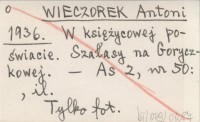 o WIECZOREK Antoni
1936. W księżycowej po-
świacie. Szałasy na Gorycz-
kowej. — As 2, nr 50:
, il.
Tylko fot.